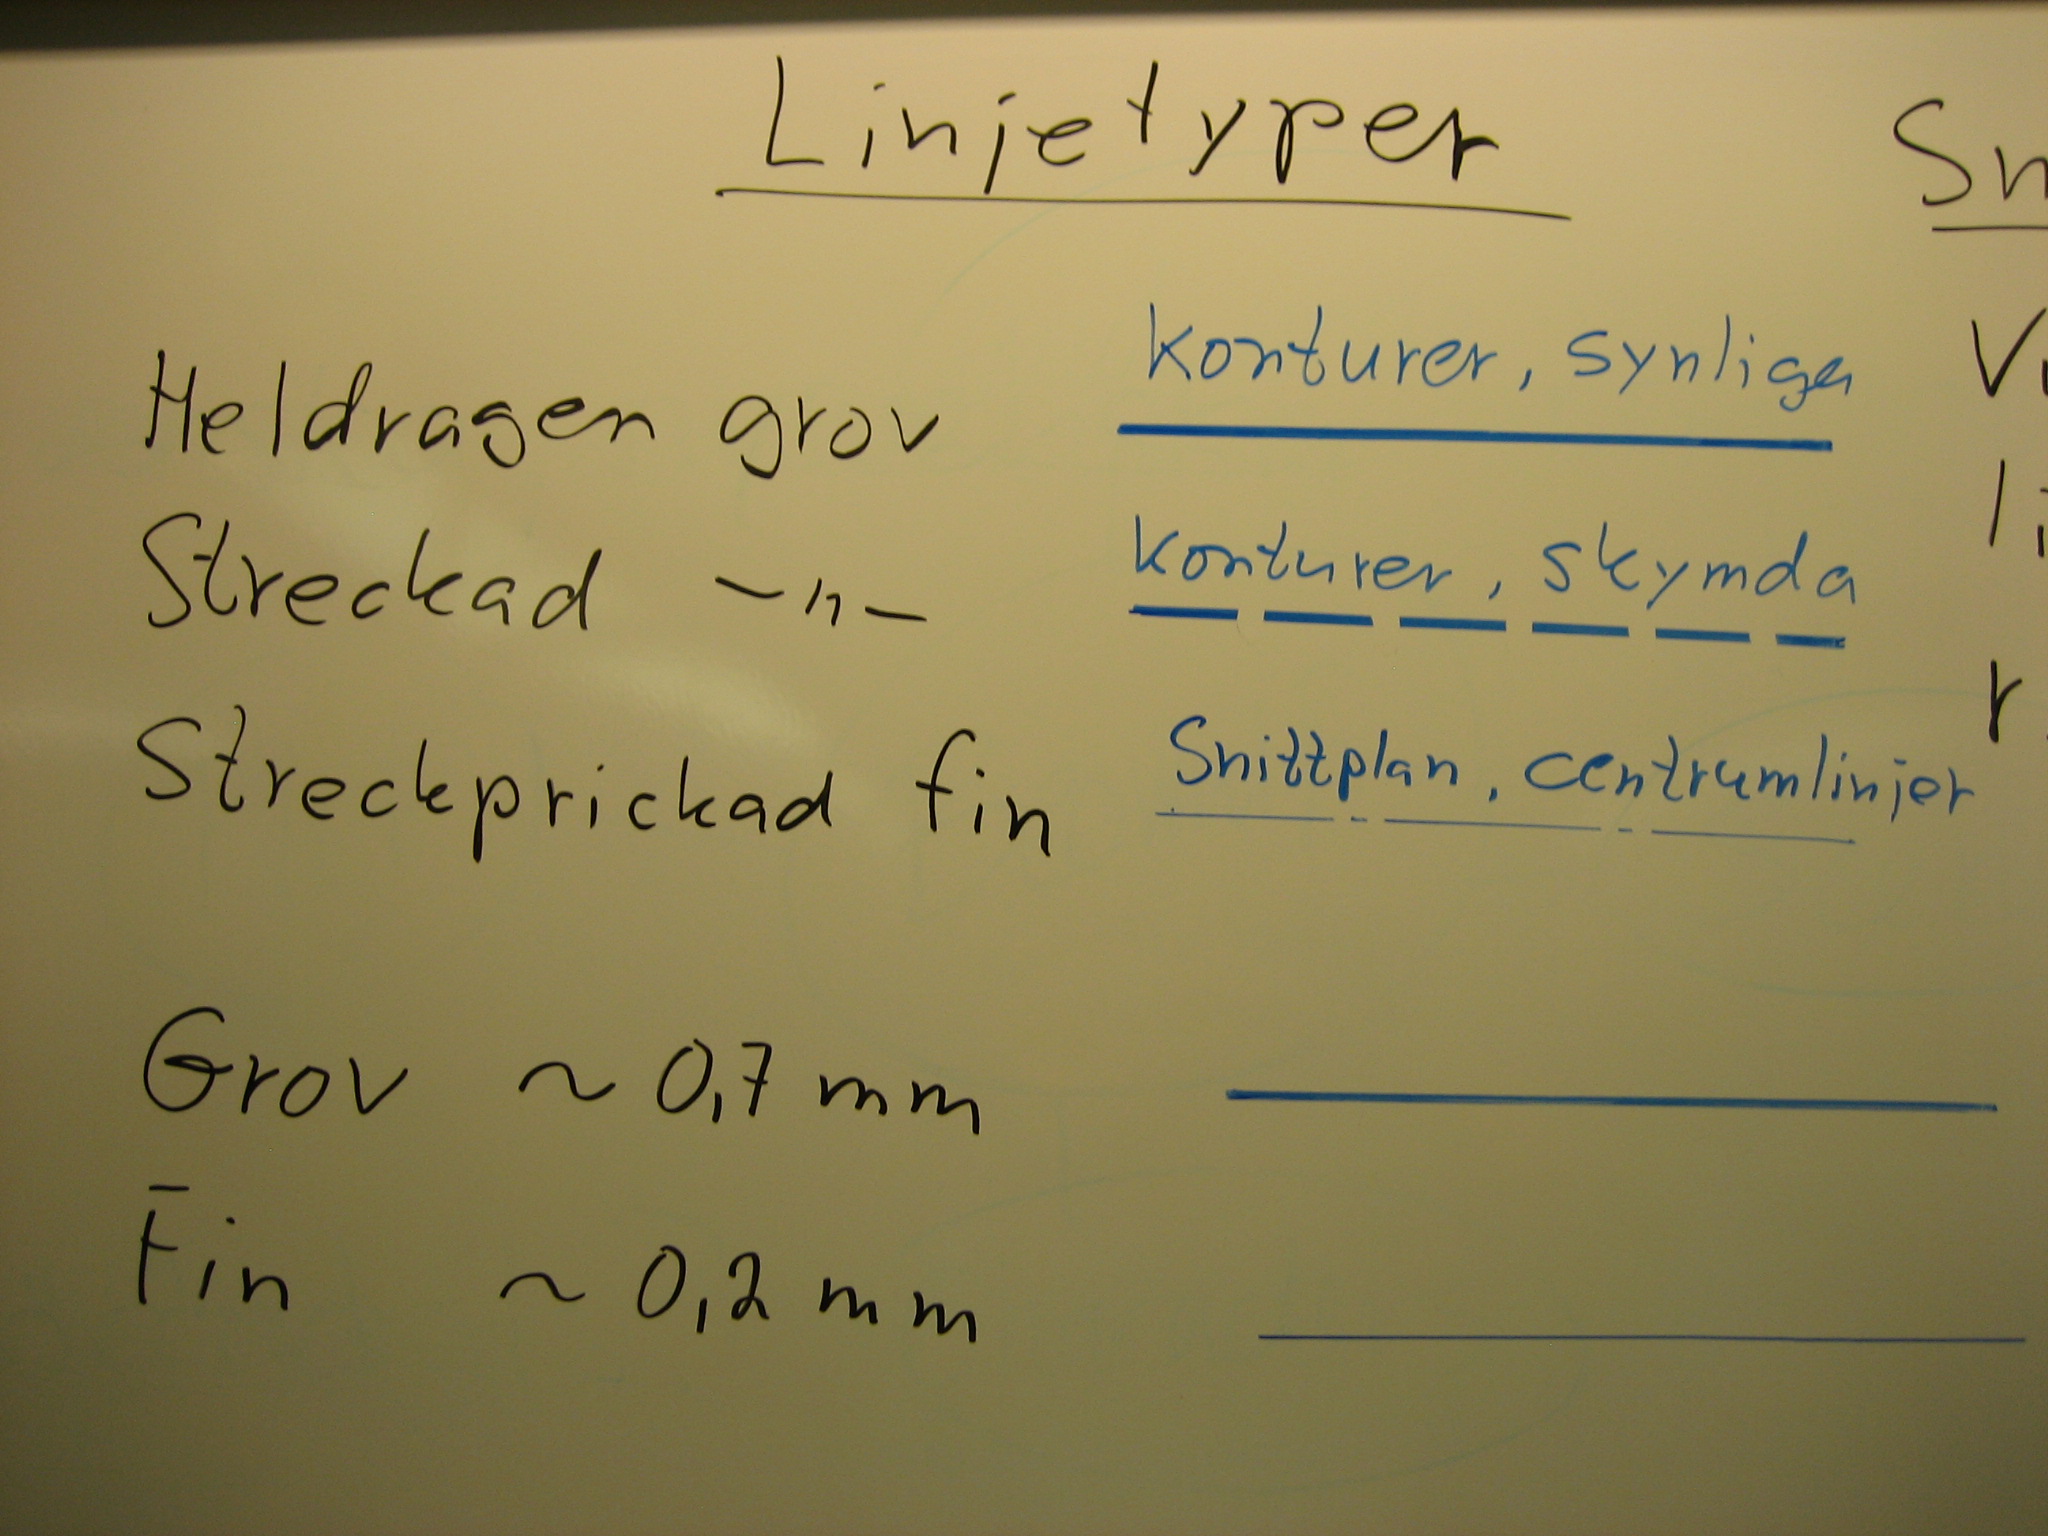 Linjetyper
Heldragen grov konturer, synliga
Streckad -"- konturer, skymda
Streckprickad fin Snittplan, centrumlinjer
Grov ~ 0,7 mm
Fin ~ 0,2 mm